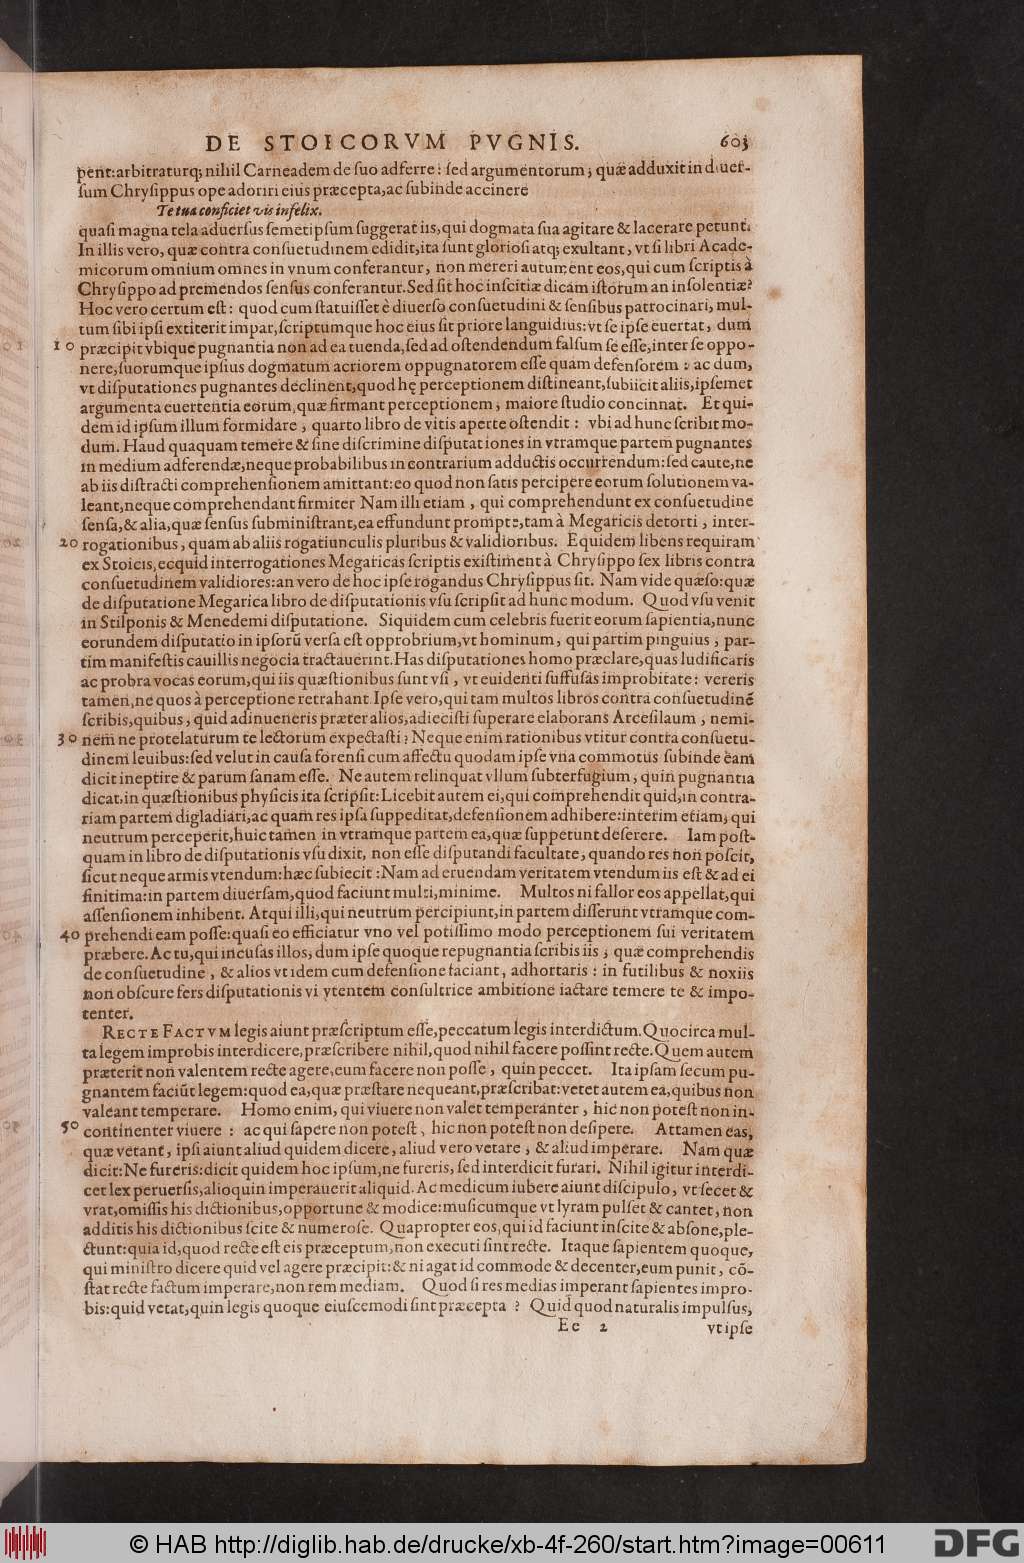 DE STOICORVM PVGNIS. 603
pent:arbitraturq; nihil Carneadem de suo adferre: sed argumentorum; quæ adduxit in diuer-
sum Chrysippus ope adoriri eius præcepta, ac subinde accinere
Te tua conficiet vis infelix.
quasi magna tela aduersus semetipsum suggerat iis, qui dogmata sua agitare & lacerare petunt.
In illis vero, quæ contra consuetudinem edidit, ita sunt gloriosi atq; exultant, vt si libri Acade-
micorum omnium omnes in vnum conferantur, non mereri autument eos, qui cum scriptis à
Chrysippo ad premendos sensus conferantur. Sed sit hoc inscitiæ dicam istorum an insolentiæ?
Hoc vero certum est: quod cum statuisset è diuerso consuetudini & sensibus patrocinari, mul-
tum sibi ipsi extiterit impar, scriptumque hoc eius sit priore languidius: vt se ipse euertat, dum
10 præcipit vbique pugnantia non ad ea tuenda, sed ad ostendendum falsum se esse, inter se oppo-
nere, suorumque ipsius dogmatum acriorem oppugnatorem esse quam defensorem: ac dum,
vt disputationes pugnantes declinent, quod hę perceptionem distineant, subiicit aliis, ipsemet
argumenta euertentia eorum, quæ firmant perceptionem, maiore studio concinnat. Et qui-
dem id ipsum illum formidare, quarto libro de vitis aperte ostendit: vbi ad hunc scribit mo-
dum. Haud quaquam temere & sine discrimine disputationes in vtramque partem pugnantes
in medium adferendæ, neque probabilibus in contrarium adductis occurrendum: sed caute, ne
ab iis distracti comprehensionem amittant: eo quod non satis percipere eorum solutionem va-
leant, neque comprehendant firmiter Nam illi etiam, qui comprehendunt ex consuetudine
sensa, & alia, quæ sensus subministrant, ea effundunt prompte, tam à Megaricis detorti, inter-
20 rogationibus, quam ab aliis rogatiunculis pluribus & validioribus. Equidem libens requiram
ex Stoicis, ecquid interrogationes Megaricas scriptis existiment à Chrysippo sex libris contra
consuetudinem validiores: an vero de hoc ipse rogandus Chrysippus sit. Nam vide quæso: quæ
de disputatione Megarica libro de disputationis vsu scripsit ad hunc modum. Quod vsu venit
in Stilponis & Menedemi disputatione. Siquidem cum celebris fuerit eorum sapientia, nunc
eorundem disputatio in ipsorũ versa est opprobrium, vt hominum, qui partim pinguius, par-
tim manifestis cauillis negocia tractauerint. Has disputationes homo præclare, quas ludificaris
ac probra vocas eorum, qui iis quæstionibus sunt vsi, vt euidenti suffusas improbitate: vereris
tamen, ne quos à perceptione retrahant Ipse vero, qui tam multos libros contra consuetudinẽ
scribis, quibus, quid adinueneris præter alios, adiecisti superare elaborans Arcesilaum, nemi-
30 nem ne protelaturum te lectorum expectasti? Neque enim rationibus vtitur contra consuetu-
dinem leuibus: sed velut in causa forensi cum affectu quodam ipse vna commotus subinde eam
dicit ineptire & parum sanam esse. Ne autem relinquat vllum subterfugium, quin pugnantia
dicat, in quæstionibus physicis ita scripsit: Licebit autem ei, qui comprehendit quid, in contra-
riam partem digladiari, ac quam res ipsa suppeditat, defensionem adhibere: interim etiam; qui
neutrum perceperit, huic tamen in vtramque partem ea, quæ suppetunt deserere. Iam post-
quam in libro de disputationis vsu dixit, non esse disputandi facultate, quando res non poscit,
sicut neque armis vtendum: hæc subiecit: Nam ad eruendam veritatem vtendum iis est & ad ei
finitima: in partem diuersam, quod faciunt multi, minime. Multos ni fallor eos appellat, qui
assensionem inhibent. Atqui illi, qui neutrum percipiunt, in partem disserunt vtramque com-
40 prehendi eam posse: quasi eo efficiatur vno vel potissimo modo perceptionem sui veritatem
præbere. Ac tu, qui incusas illos, dum ipse quoque repugnantia scribis iis; quæ comprehendis
de consuetudine, & alios vt idem cum defensione faciant, adhortaris: in futilibus & noxiis
non obscure fers disputationis vi ytentem consultrice ambitione iactare temere te & impo-
tenter.
RECTE FACTVM legis aiunt præscriptum esse, peccatum legis interdictum. Quocirca mul-
ta legem improbis interdicere, præscribere nihil, quod nihil facere possint recte. Quem autem
præterit non valentem recte agere, eum facere non posse, quin peccet. Ita ipsam secum pu-
gnantem faciũt legem: quod ea, quæ præstare nequeant, præscribat: vetet autem ea, quibus non
valeant temperare. Homo enim, qui viuere non valet temperanter, hic non potest non in-
50 continenter viuere: ac qui sapere non potest, hic non potest non desipere. Attamen eas,
quæ vetant, ipsi aiunt aliud quidem dicere, aliud vero vetare, & aliud imperare. Nam quæ
dicit: Ne fureris: dicit quidem hoc ipsum, ne fureris, sed interdicit furari. Nihil igitur interdi-
cet lex peruersis, alioquin imperauerit aliquid. Ac medicum iubere aiunt discipulo, vt secet &
vrat, omissis his dictionibus, opportune & modice: musicumque vt lyram pulset & cantet, non
additis his dictionibus scite & numerose. Quapropter eos, qui id faciunt inscite & absone, ple-
ctunt: quia id, quod recte est eis præceptum, non executi sint recte. Itaque sapientem quoque,
qui ministro dicere quid vel agere præcipit: & ni agat id commode & decenter, eum punit, cõ-
stat recte factum imperare, non rem mediam. Quod si res medias imperant sapientes impro-
bis: quid vetat, quin legis quoque eiuscemodi sint præcepta? Quid quod naturalis impulsus,
Ee 2 vt ipse
© HAB http://diglib.hab.de/drucke/xb-4f-260/start.htm?image=00611
DFG